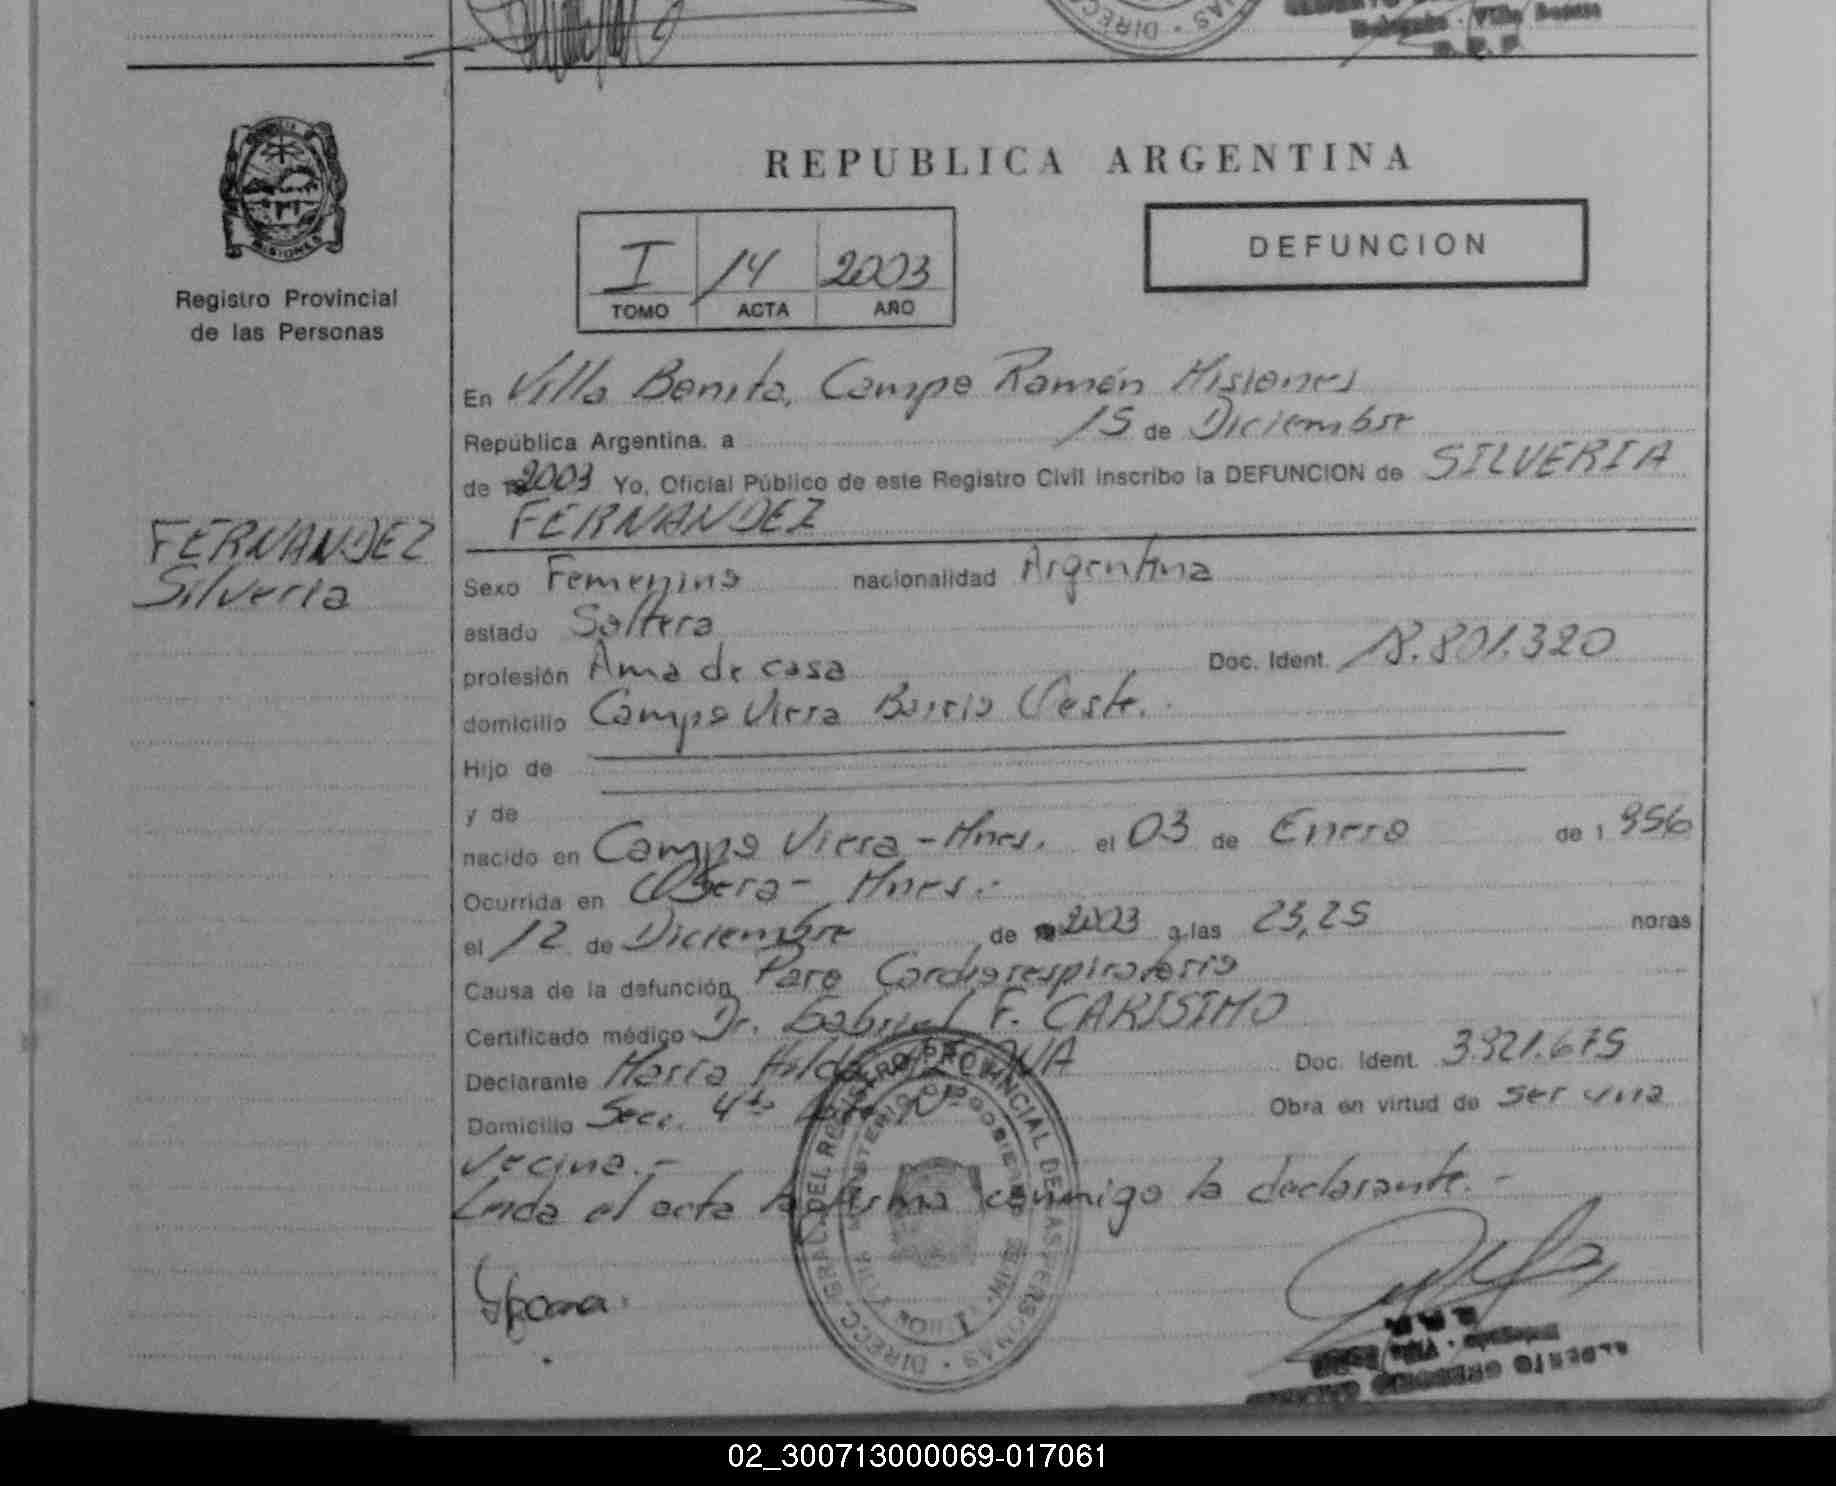 DIREC
Delegado - Villa Bonita
R. P. P.
MISIONES
Registro Provincial
de las Personas
FERNANDEZ
Silveria
REPUBLICA ARGENTINA
I 14 2003
TOMO ACTA AÑO
DEFUNCION
En Villa Bonita, Campo Ramón Misiones
República Argentina, a 15 de Diciembre
de 2003 Yo, Oficial Público de este Registro Civil inscribo la DEFUNCION de SILVERIA
FERNANDEZ
Sexo Femenino nacionalidad Argentina
estado Soltera
profesión Ama de casa Doc. Ident. 18.801.320
domicilio Campo Viera Barrio Oeste.
Hijo de
y de
nacido en Campo Viera - Mnes. el 03 de Enero de 1 956
Ocurrida en Obera - Mnes.-
el 12 de Diciembre de 2003 a las 23,25 horas
Causa de la defunción Paro Cardiorespiratorio
Certificado médico Dr. Gabriel F. CARISIMO
Declarante Maria Hilda Doc. Ident. 3.921.675
Domicilio Secc. 4ta Obra en virtud de ser una
vecina.-
Leida el acta la firma conmigo la declarante.-
DIRECC. GRAL. DEL REGISTRO PROVINCIAL DE LAS PERSONAS
MINISTERIO DE GOBIERNO
R. P. P.
Delegado - Villa Bonita
ALBERTO GREGORIO
02_300713000069-017061